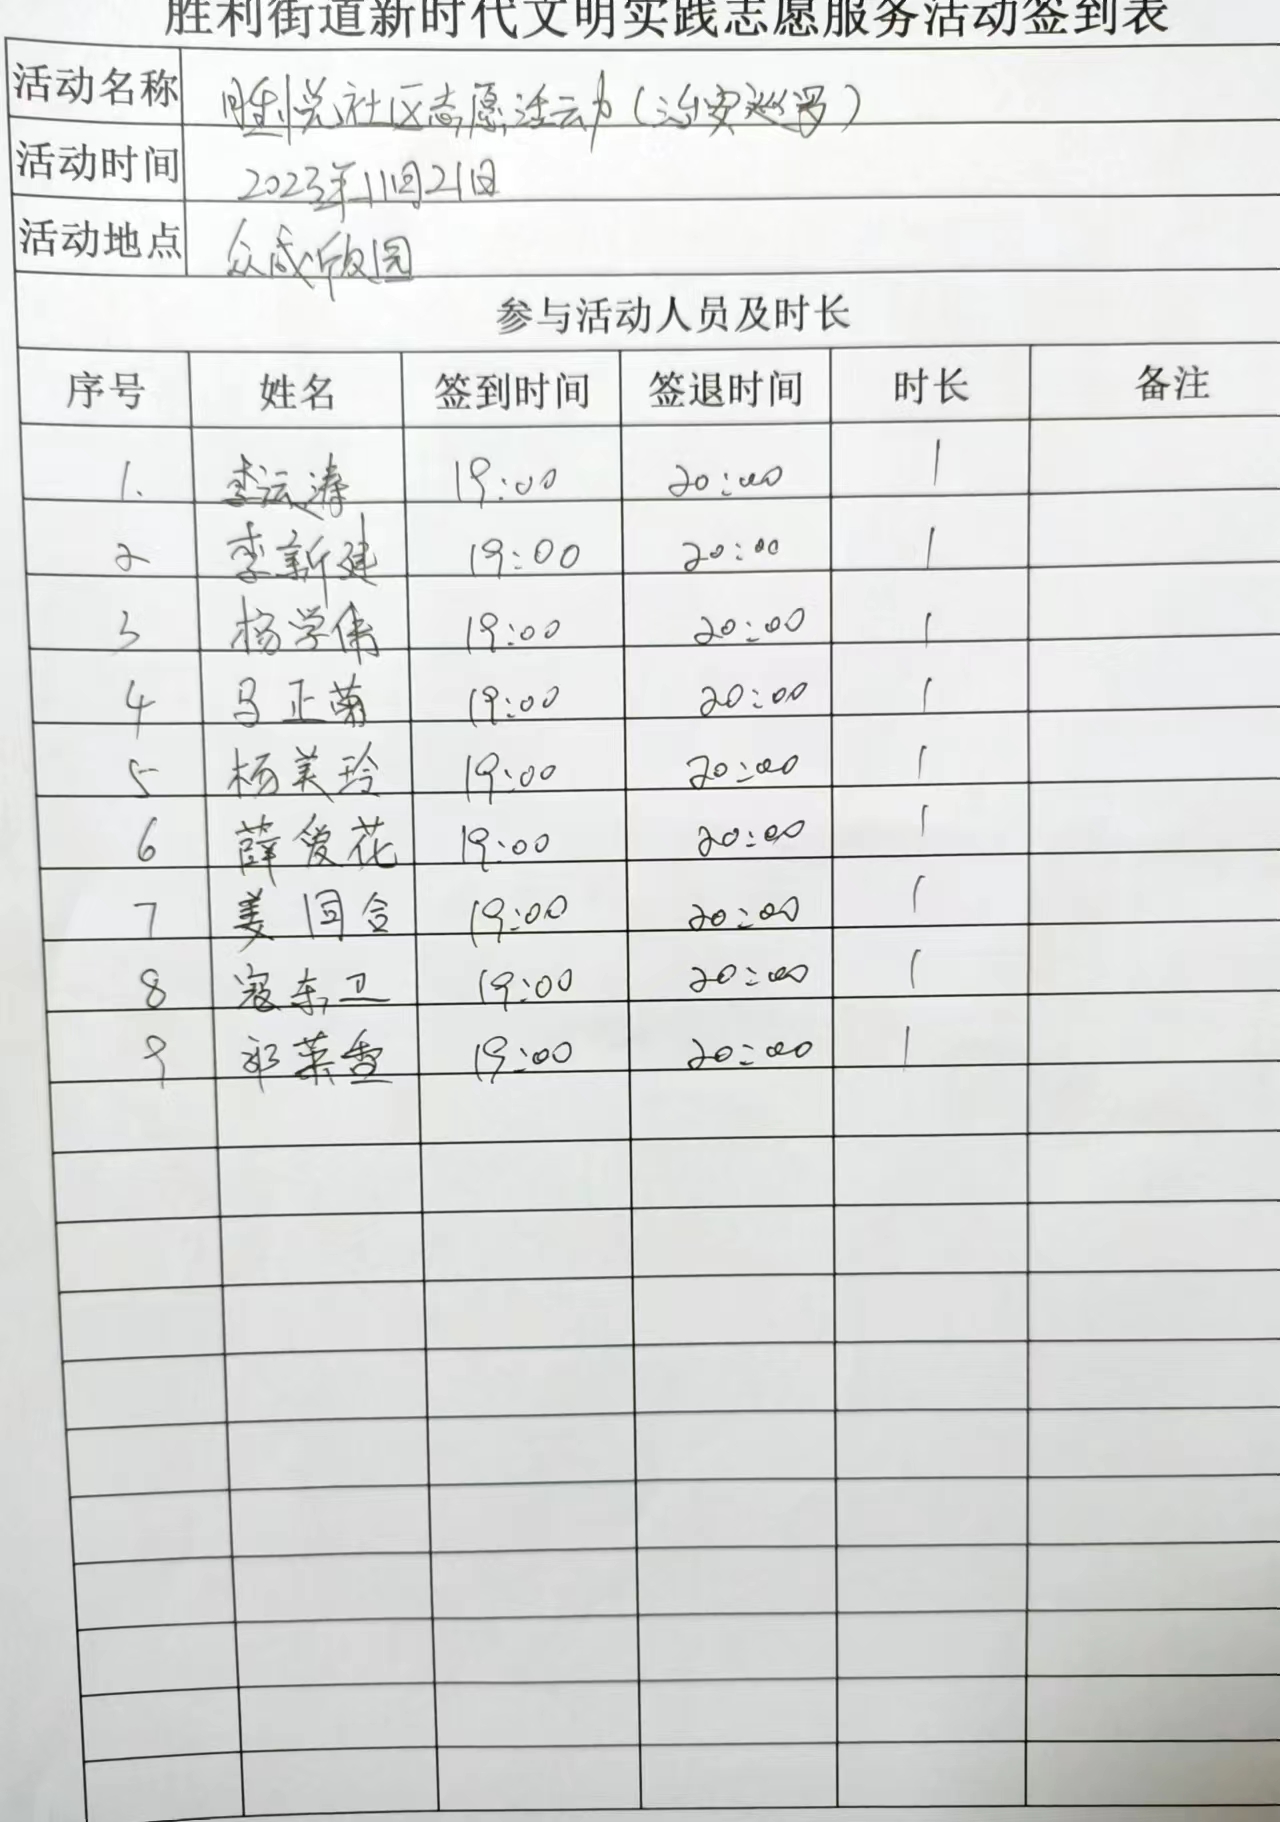 胜利街道新时代文明实践志愿服务活动签到表
活动名称 胜利党社区志愿活动(治安巡逻)
活动时间 2023年11月21日
活动地点 众成版园
参与活动人员及时长
序号 姓名 签到时间 签退时间 时长 备注
1. 李云涛 19:00 20:00 1
2 李新建 19:00 20:00 1
3 杨学伟 19:00 20:00 1
4 马正菊 19:00 20:00 1
5 杨美玲 19:00 20:00 1
6 薛爱花 19:00 20:00 1
7 姜国合 19:00 20:00 1
8 寇东卫 19:00 20:00 1
9 祁菜香 19:00 20:00 1